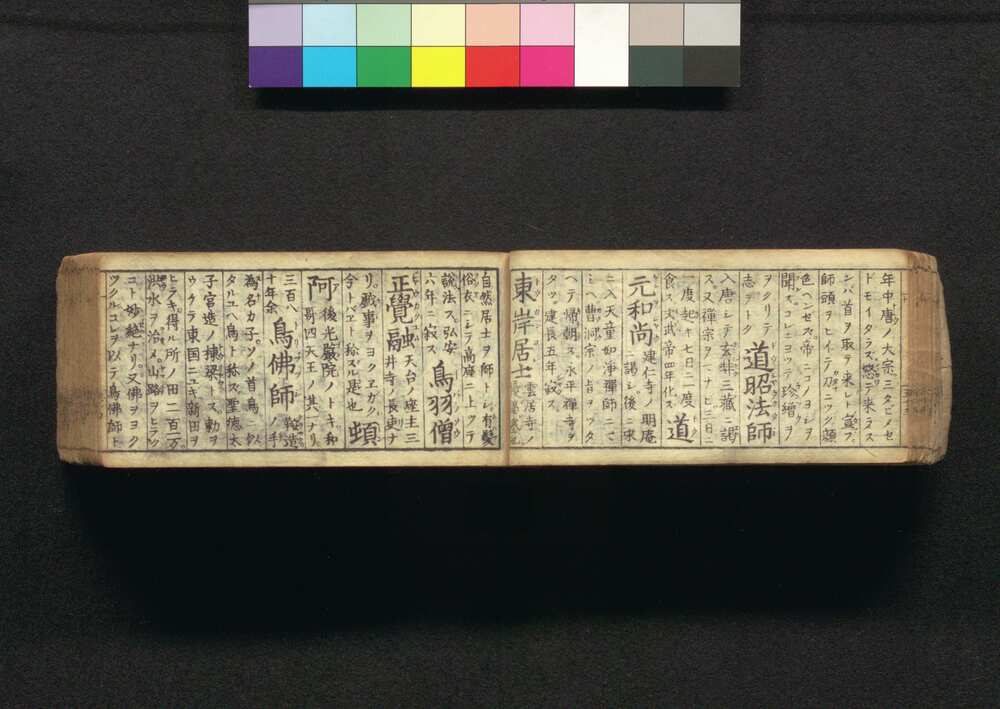 年中唐ノ大宗三タビメセ
ドモイタラズ怒テ来ラス
ンバ首ヲ取テ来レト
師頭ヲヒイテ刀ニツク顔
色ヘンセズ帝ニコノヨシヲ
聞スコレニヨツテ珍繒ヲ
ヲクリテ
志ヲトク 道昭法師
入唐シテ玄弉三藏ニ謁
ス又禪宗ヲツナヒ三日ニ
一度起キ七日ニ二度
食ス文武帝四年化ス 道
元和尚 建仁寺ノ明庵
ニ謁シ後ニ宋
ニ入天童如淨禪師ニマ
ミヘ曹洞宗ノ旨ヲツタ
ヘテ歸朝ス永平禪寺ヲ
タツ建長五年寂ス
東岸居士 雲居寺ノ
自然居士ヲ師トシ有髮
俗衣ニシテ高座ニ上ツテ
説法ス弘安
六年ニ寂ス 鳥羽僧
正覺融 天台ノ座主三
井寺ノ長吏ナ
リ戲事ヲヨクヱガク
今トバヱト称スル是也 頓
阿 後光嚴院ノトキ和
哥四天王ノ其一ナリ
三百八
十年余 鳥佛師 鞍造
ノ手
為名カ子ソノ首鳥ニ似
タルユヘ鳥ト称ス聖徳太
子宮造ノ棟梁トス勅ヲ
ウケテ東国ニユキ新田ヲ
ヒラキ得ル所ノ田二百万
洪水ヲ治メ山路ヲヒラク
コト妙絶ナリ又佛ヲヨク
ツクルコレヲ以テ鳥佛師ト